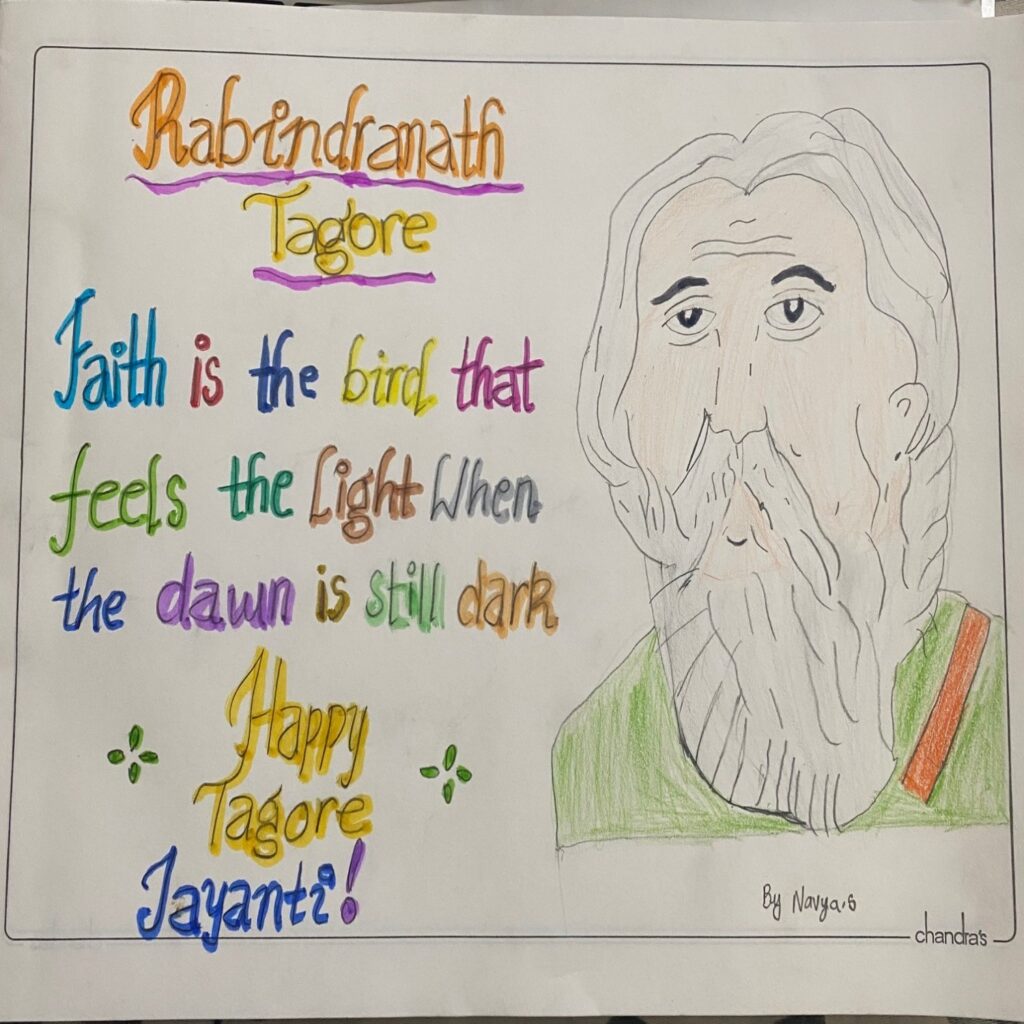 Rabindranath
Tagore
Faith is the bird that
feels the Light When
the dawn is still dark
Happy
Tagore
Jayanti!
By Navya.S
chandra's